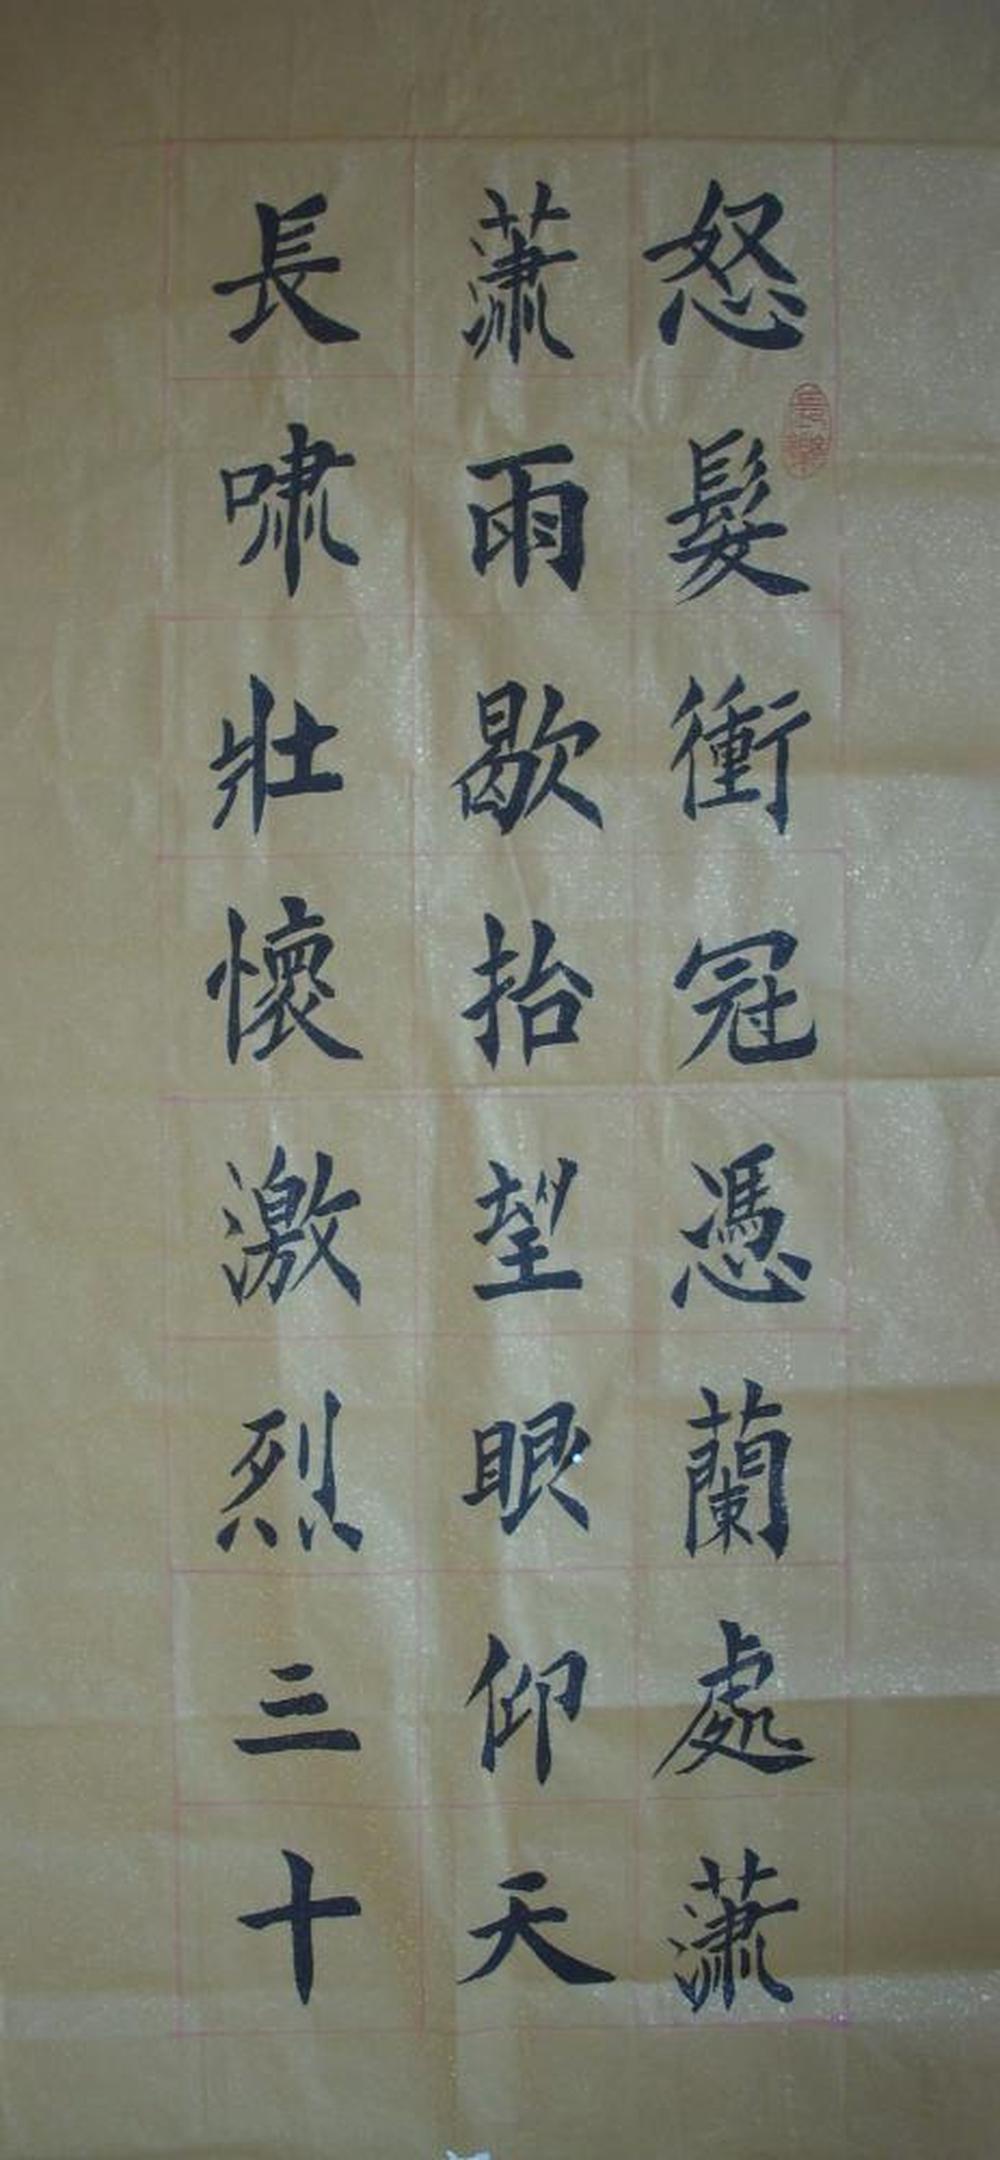 怒髮衝冠憑蘭處蕭
蕭雨歇抬望眼仰天
長嘯壯懷激烈三十